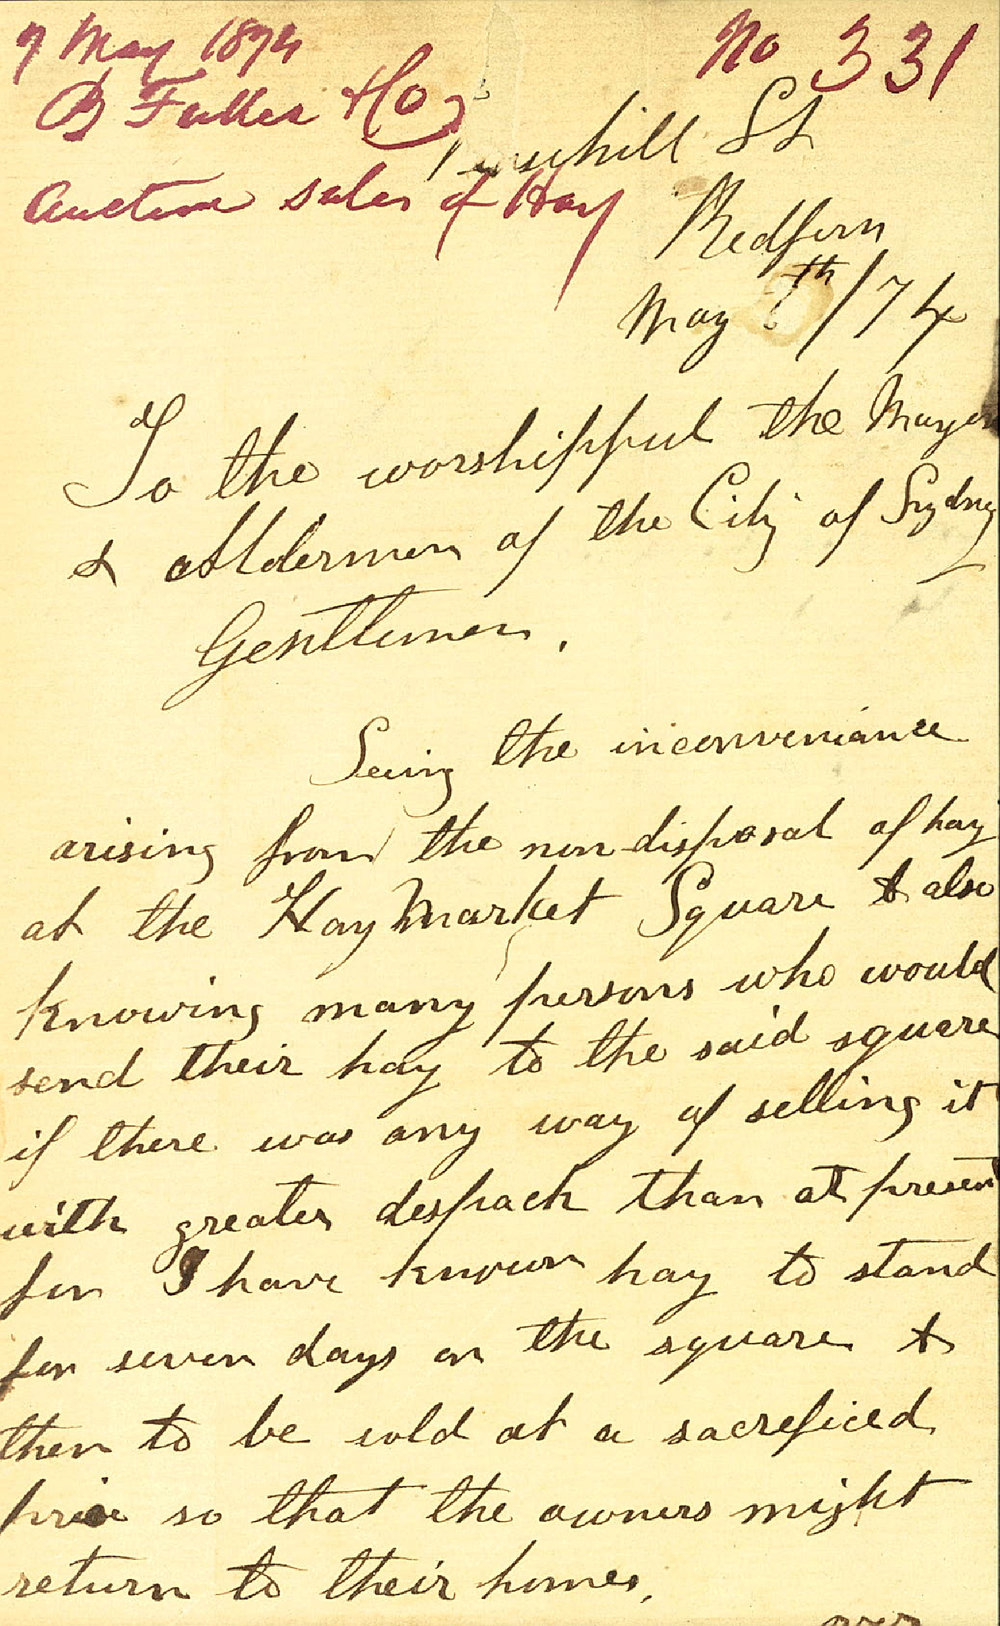 7 May 1874
No 331
B Fuller & Co
St
Auction sales of Hay
Redfern
May th/74
To the worshipful the Mayor
& Aldermen of the City of Sydney
Gentlemen,
Seing the inconveniance
arising from the non disposal of hay
at the Hay Market Square & also
knowing many persons who would
send their hay to the said square
if there was any way of selling it
with greater despach than at present
for I have known hay to stand
for seven days on the square &
then to be sold at a sacreficed
price so that the owners might
return to their homes.